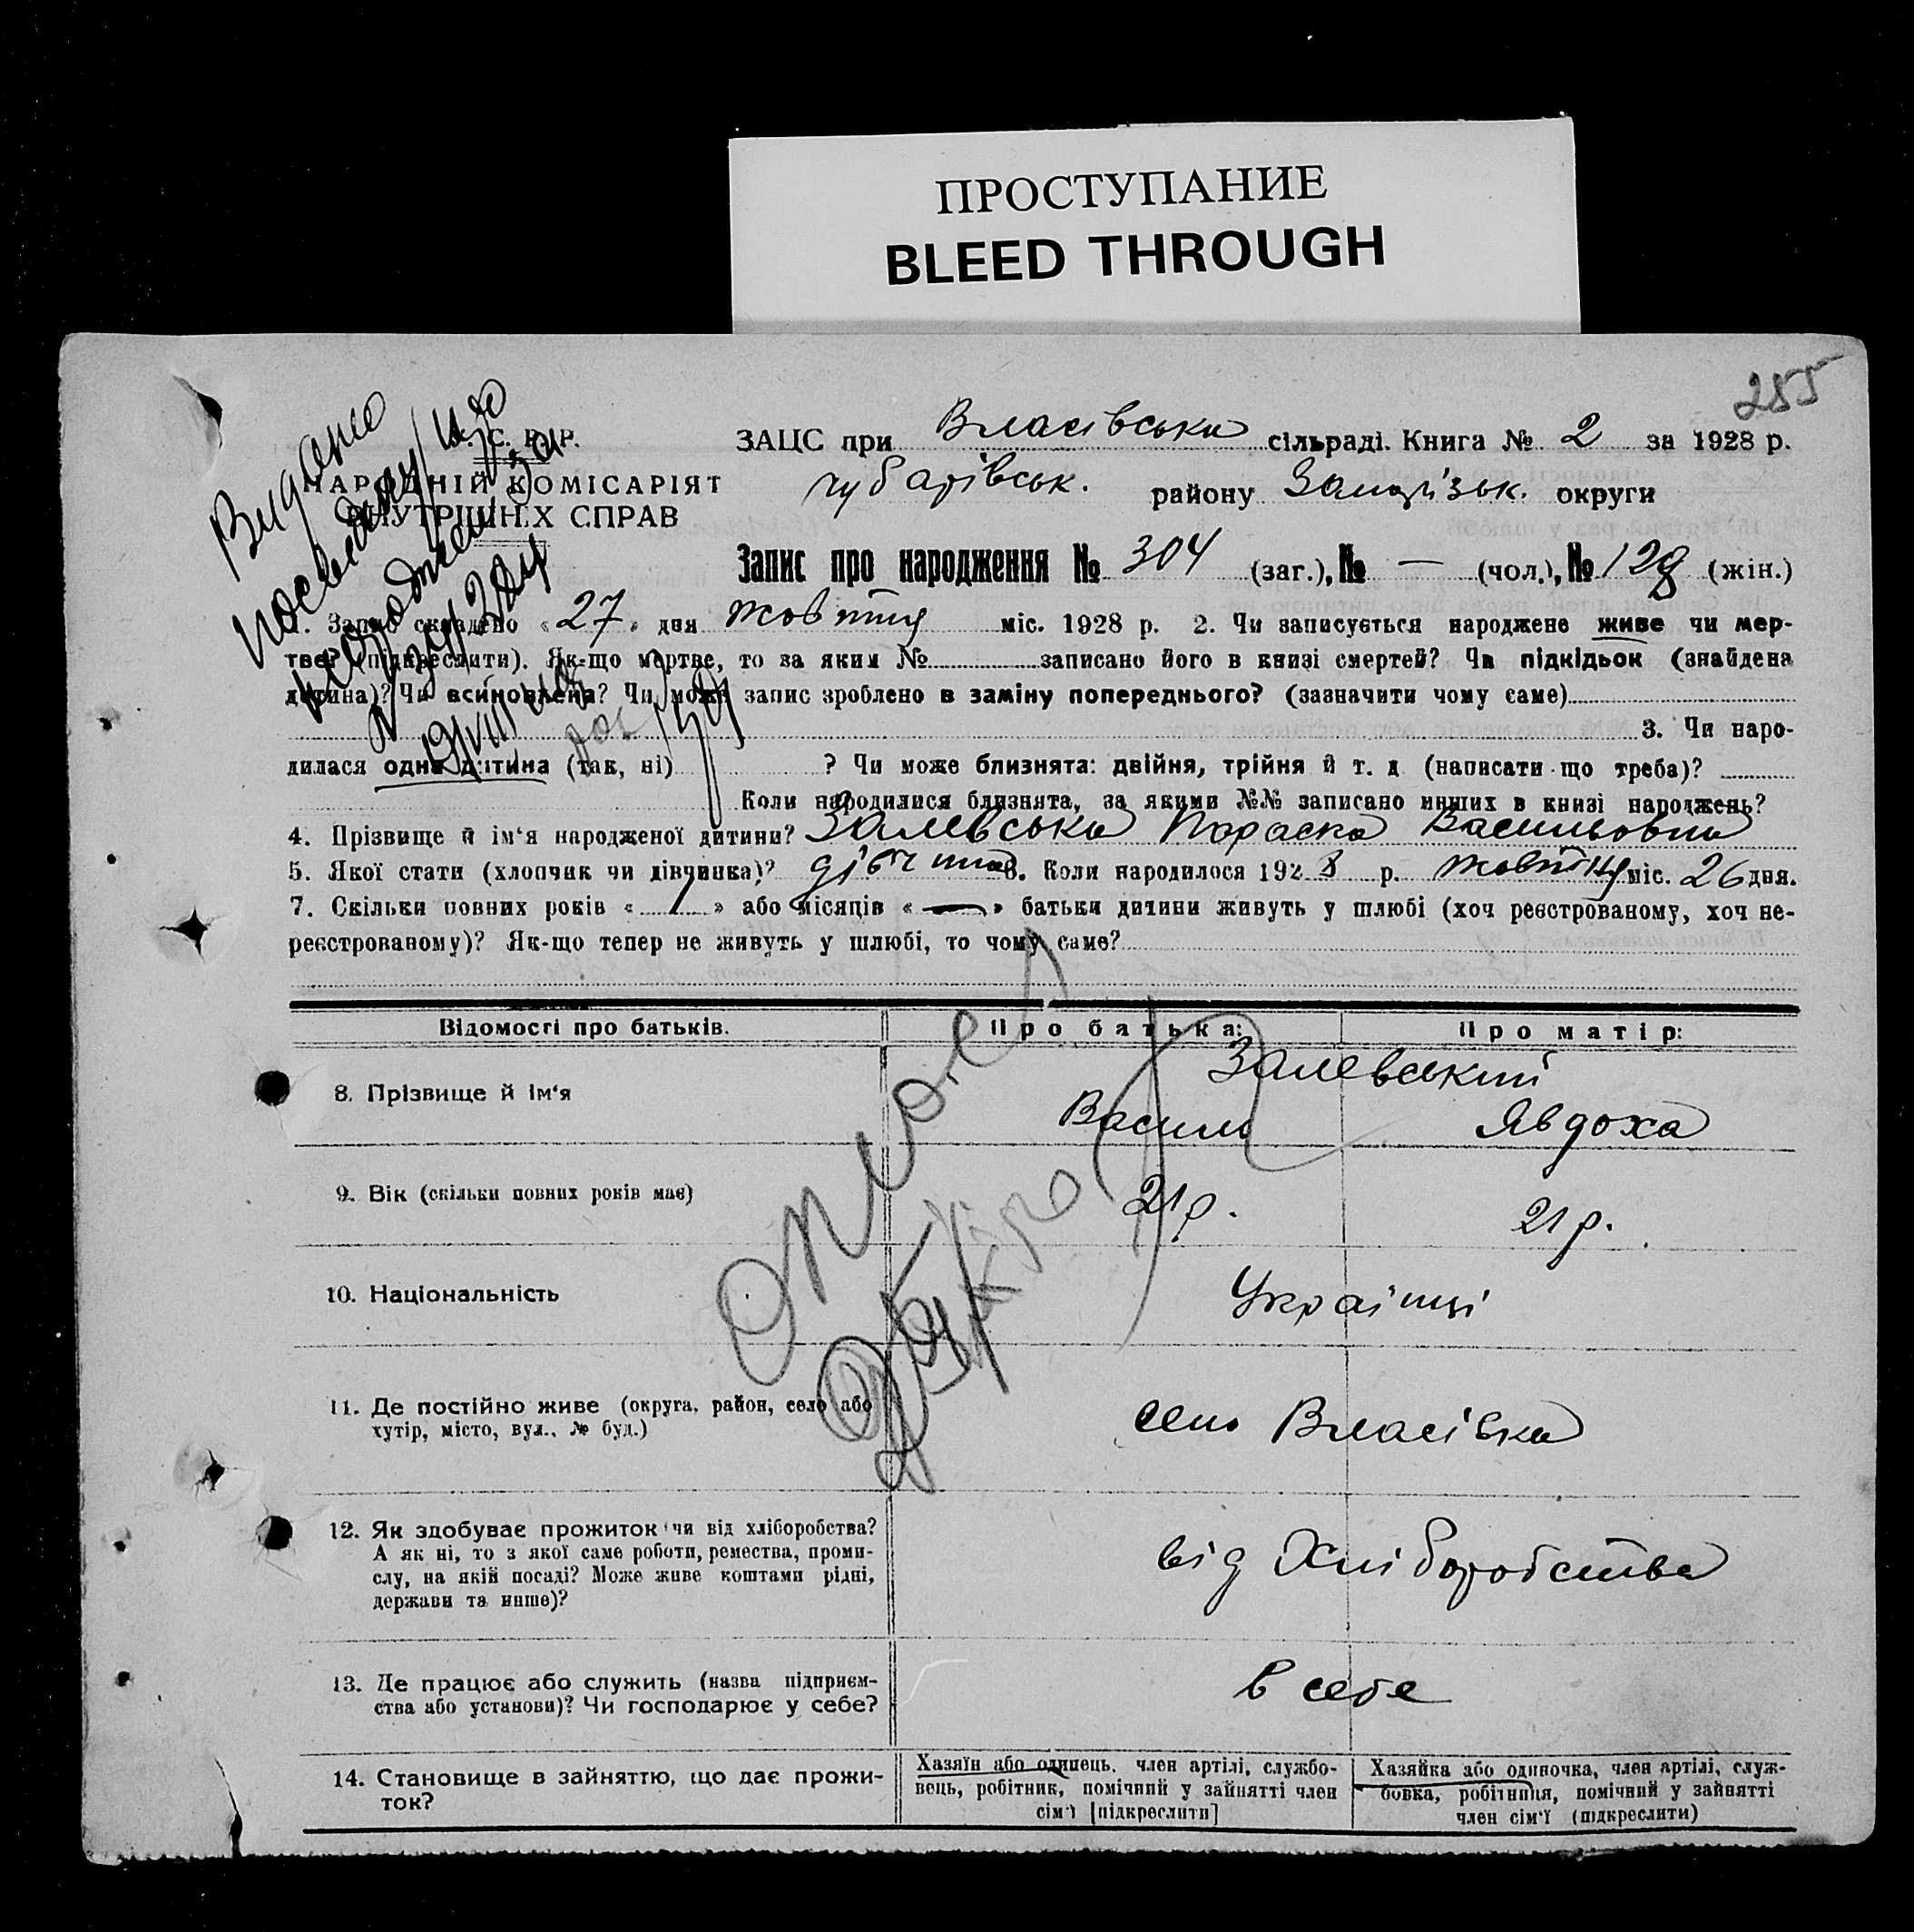 ПРОСТУПАНИЕ
BLEED THROUGH
255
Видано
посвідку
ЗАЦС при Власівська сільраді. Книга № 2 за 1928 р.
Чубарівськ. району Запорізьк. округи
НАРОДНІЙ КОМІСАРІЯТ
ВНУТРІШНІХ СПРАВ
Запис про народження № 304 (заг.), № — (чол.), № 128 (жін.)
1. Запис складено «27» дня жовтня міс. 1928 р. 2. Чи записується народжене живе чи мер-
тве? (підкреслити). Як-що мертве, то за яким № записано його в книзі смертей? Чи підкідьок (знайдена
дитина)? Чи всиновлена? Чи може запис зроблено в заміну попереднього? (зазначити чому саме)
3. Чи наро-
дилася одна дитина (так, ні) ? Чи може близнята: двійня, трійня й т. д (написати що треба)?
Коли народилися близнята, за якими №№ записано инших в книзі народжень?
4. Прізвище й ім‘я народженої дитини? Залевська Параска Васильовна
5. Якої стати (хлопчик чи дівчинка)? дівчина 6. Коли народилося 1928 р. жовтня міс. 26 дня.
7. Скільки повних років «1» або місяців «—» батьки дитини живуть у шлюбі (хоч реєстрованому, хоч не-
реєстрованому)? Як-що тепер не живуть у шлюбі, то чому саме?
Відомості про батьків. Про батька: Про матір:
Залевський
8. Прізвище й ім‘я Василь Явдоха
9. Вік (скільки повних років має) 21 р. 21 р.
10. Національність Українці
11. Де постійно живе (округа, район, село або
хутір, місто, вул., № буд.) село Власівка
12. Як здобуває прожиток чи від хліборобства?
А як ні, то з якої саме роботи, ремества, проми-
слу, на якій посаді? Може живе коштами рідні,
держави та инше)? від Хліборобства
13. Де працює або служить (назва підприєм-
ства або установи)? Чи господарює у себе? в себе
14. Становище в зайняттю, що дає прожи-
ток?
Хазяїн або одинець, член артілі, службо-
вець, робітник, помічний у зайнятті член
сім‘ї [підкреслити]
Хазяйка або одиночка, член артілі, служ-
бовка, робітниця, помічний у зайнятті
член сім‘ї (підкреслити)